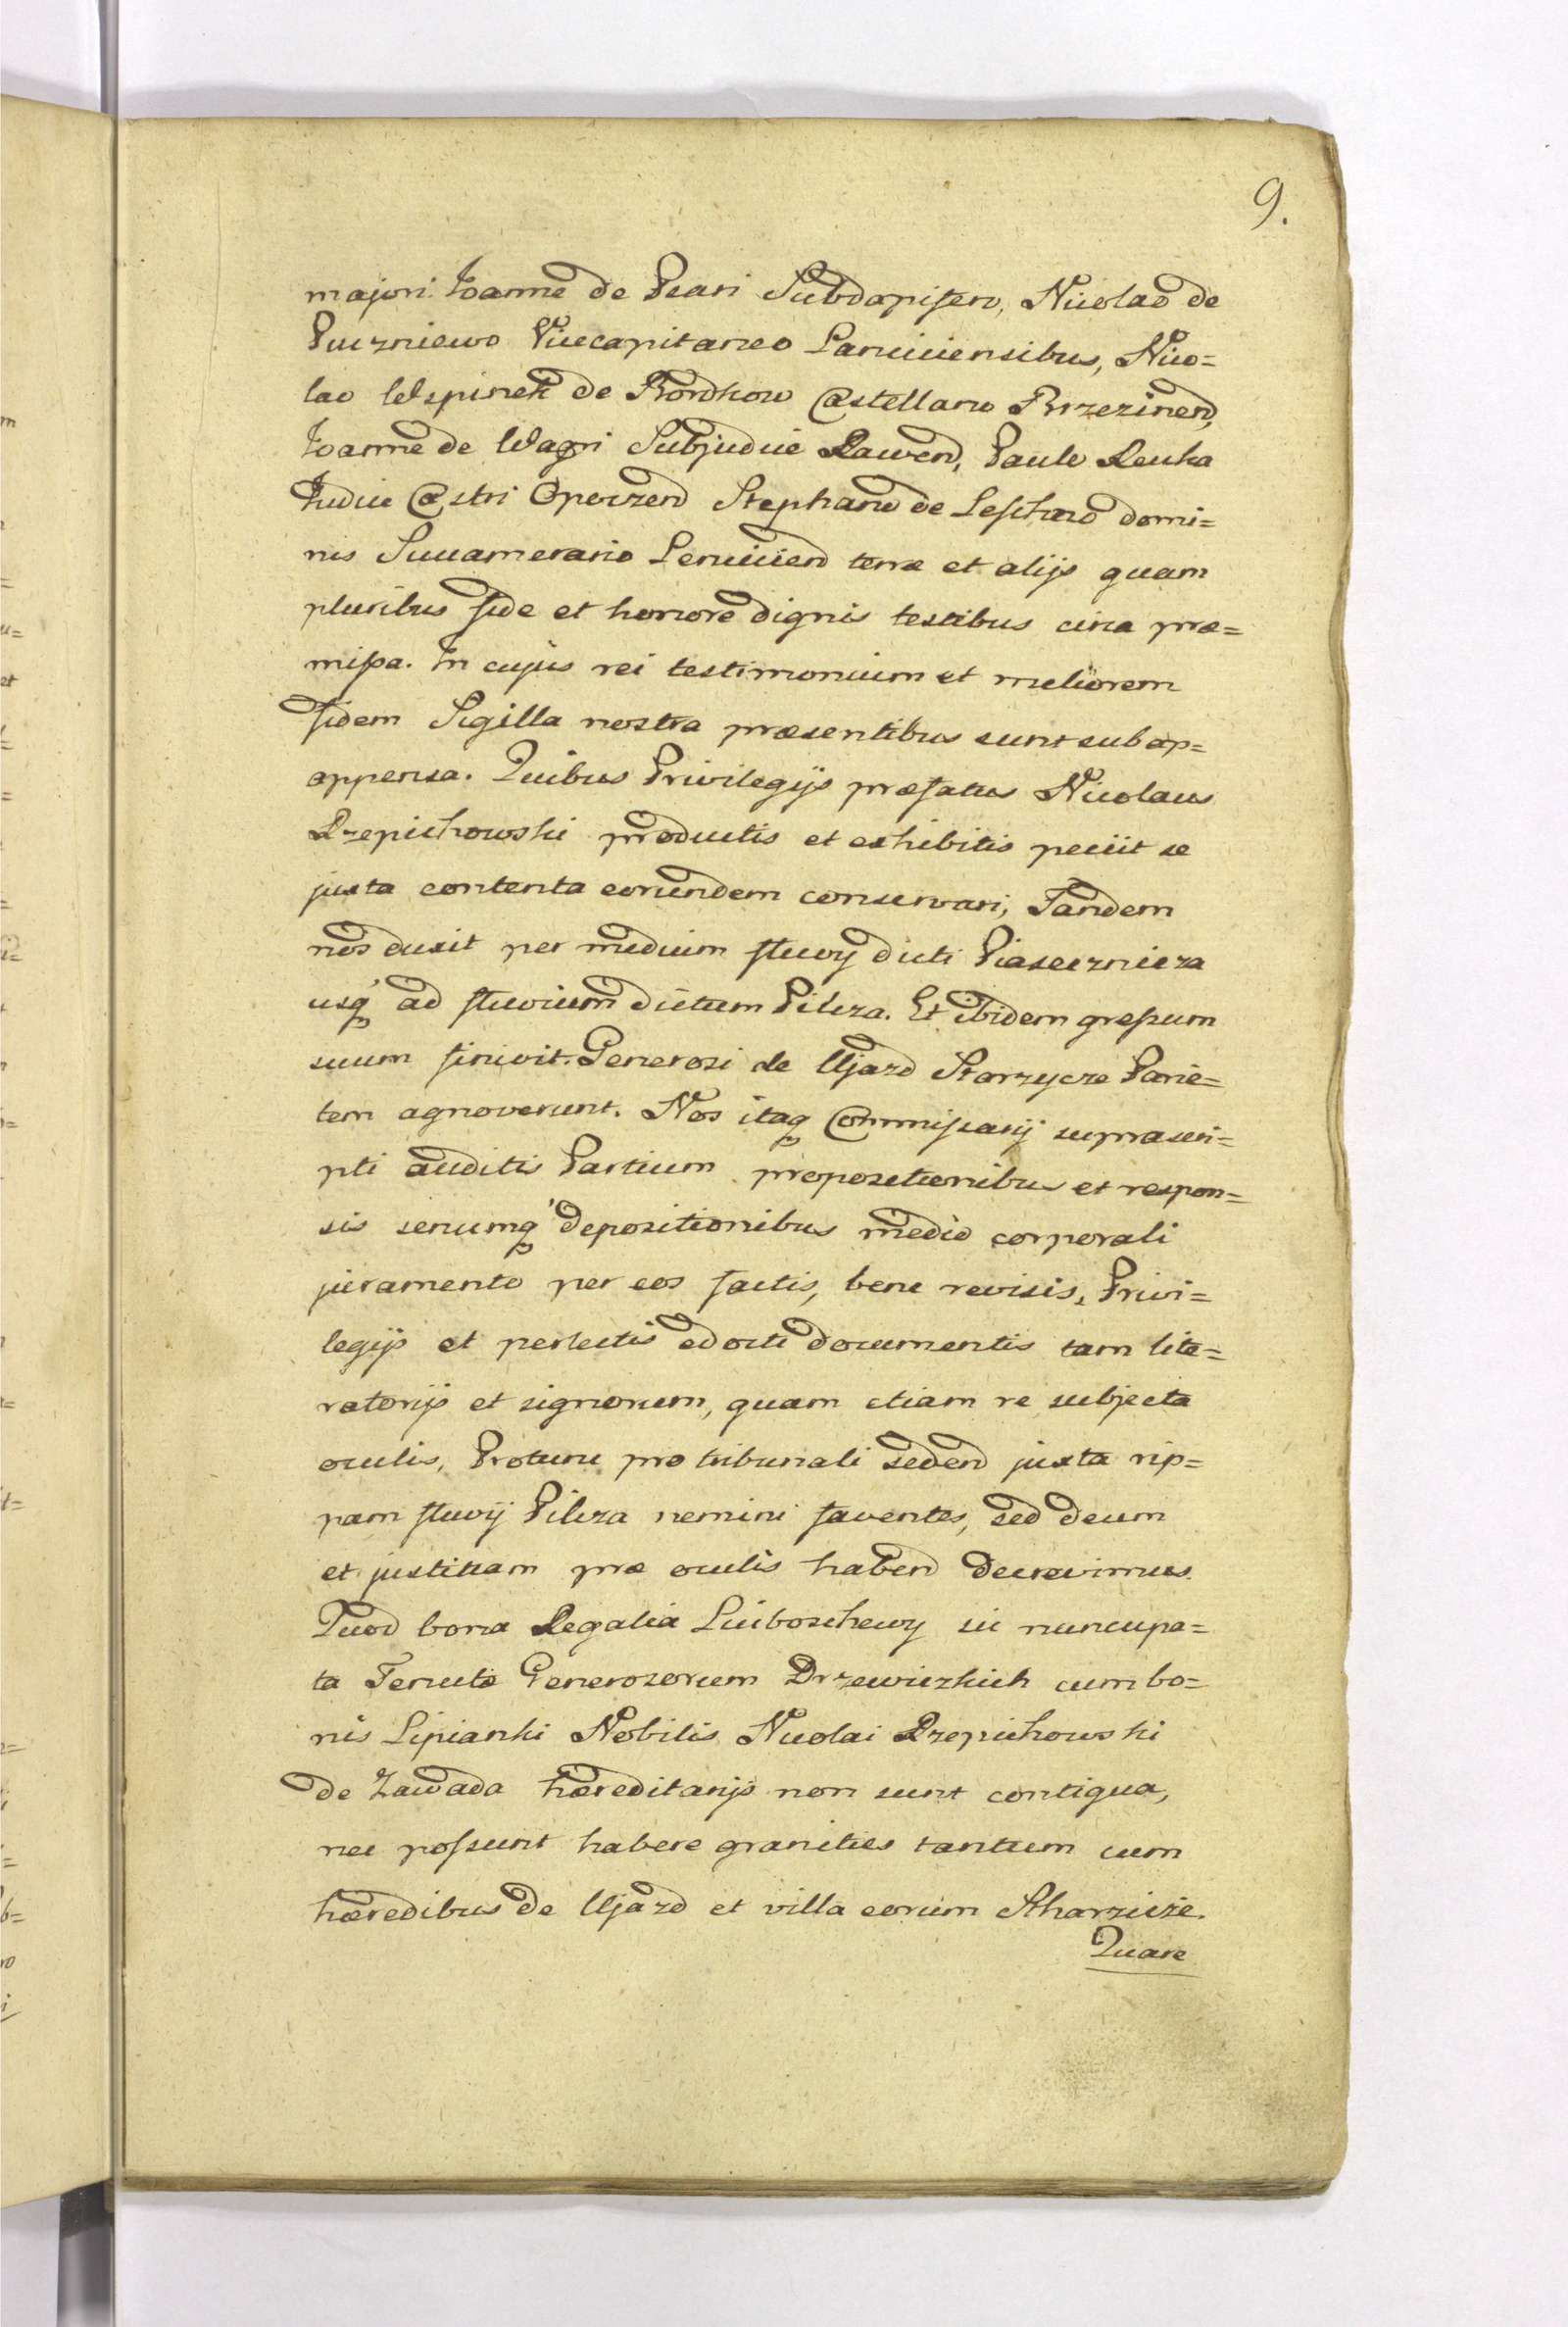 9.
majori. Joanne de Psari Subdapifero, Nicolao de
Puczniewo Vicecapitaneo Lanciciensibus, Nico=
lao Wspinek de Bordkow Castellano Brzezinen,
Joanne de Wagri Subjudice Rawen, Paulo Reuka
Judice Castri Opoczen Stephano de Leschno domi=
nis Succamerario Lencicien terræ et alijs quam
pluribus fide et honore dignis testibus circa præ=
missa. In cujus rei testimonium et meliorem
fidem Sigilla nostra præsentibus sunt sub ap=
appensa. Quibus Privilegijs præfatus Nicolaus
Rzepichowski productis et exhibitis peciit se
juxta contenta eorundem conservari, Tandem
nos duxit per medium fluvij dicti Piasecznicza
usq ad fluvium dictum Pilcza. Et ibidem gressum
suum finivit. Generosi de Ujazd Starzycze Parie=
tem agnoverunt. Nos itaq Commissarij suprascri=
pti auditis Partium propositionibus et respon=
sis senumq depositionibus medio corporali
juramento per eos factis, bene revisis, Privi=
legijs et perlectis edocti documentis tam lite=
ratorijs et signorum, quam etiam re subjecta
oculis, Protunc pro tribunali seden juxta rip=
pam fluvij Pilcza nemini faventes, sed deum
et justitiam præ oculis haben decrevimus.
Quod bona Regalia Luiboschewy sic nuncupa=
ta Tenutæ Generosorum Drzewiczkich cum bo=
nis Lipianki Nobilis Nicolai Rzepichowski
de Zawada hæreditarijs non sunt contigua,
nec possunt habere granities tantum cum
hæredibus de Ujazd et villa eorum Stharzicze.
Quare